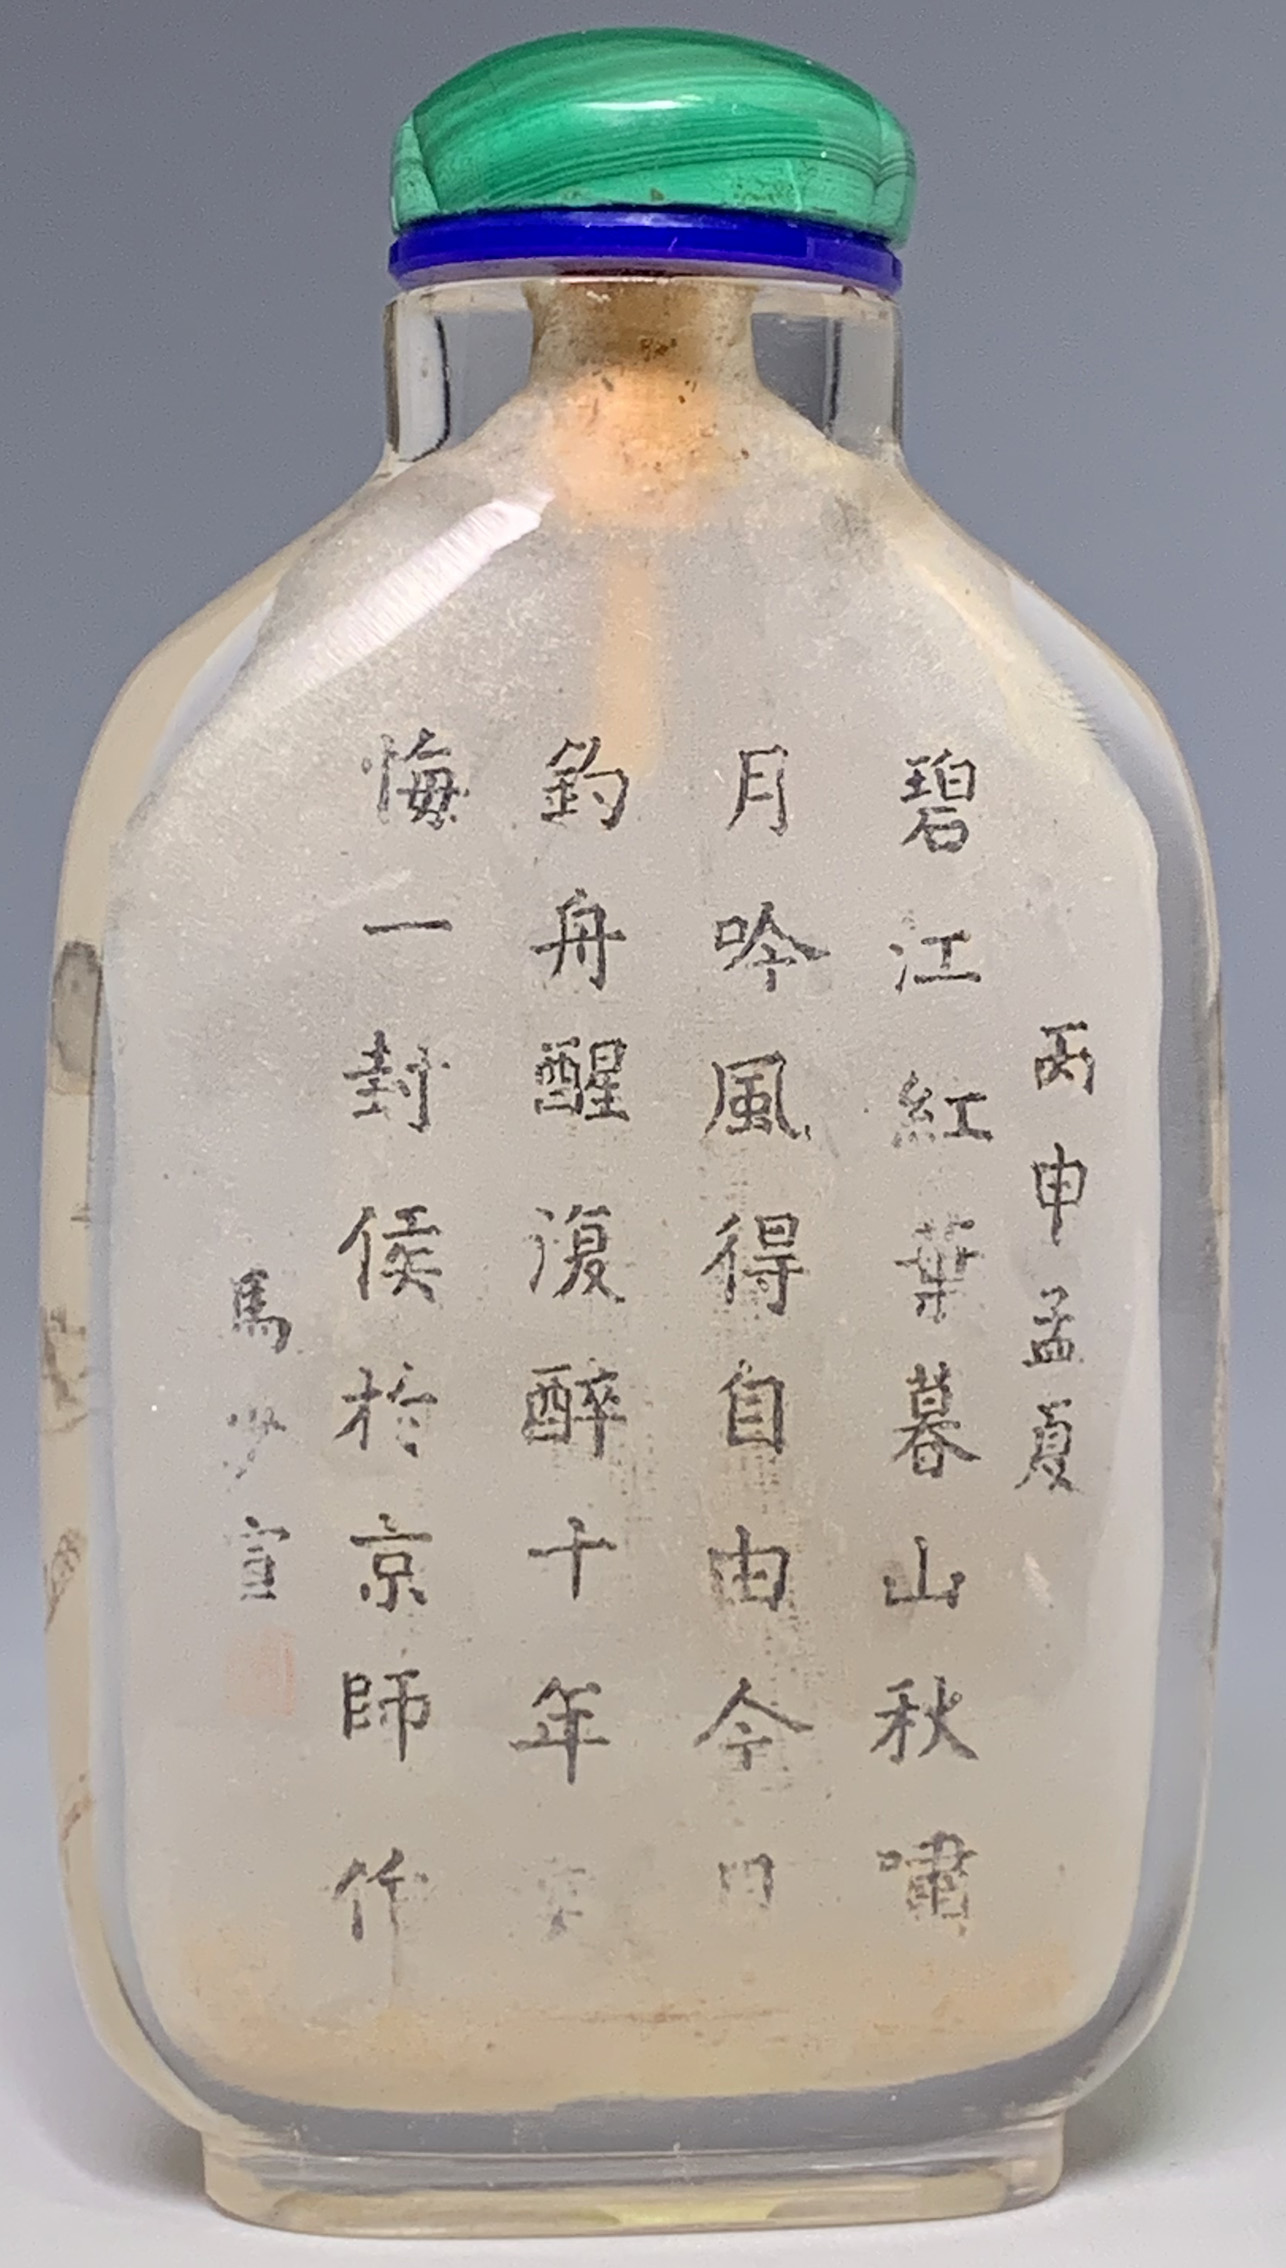 丙申孟夏
碧江紅葉暮山秋嘯
月吟風得自由今日
釣舟醒復醉十年
悔一封侯於京師作
馬少宣